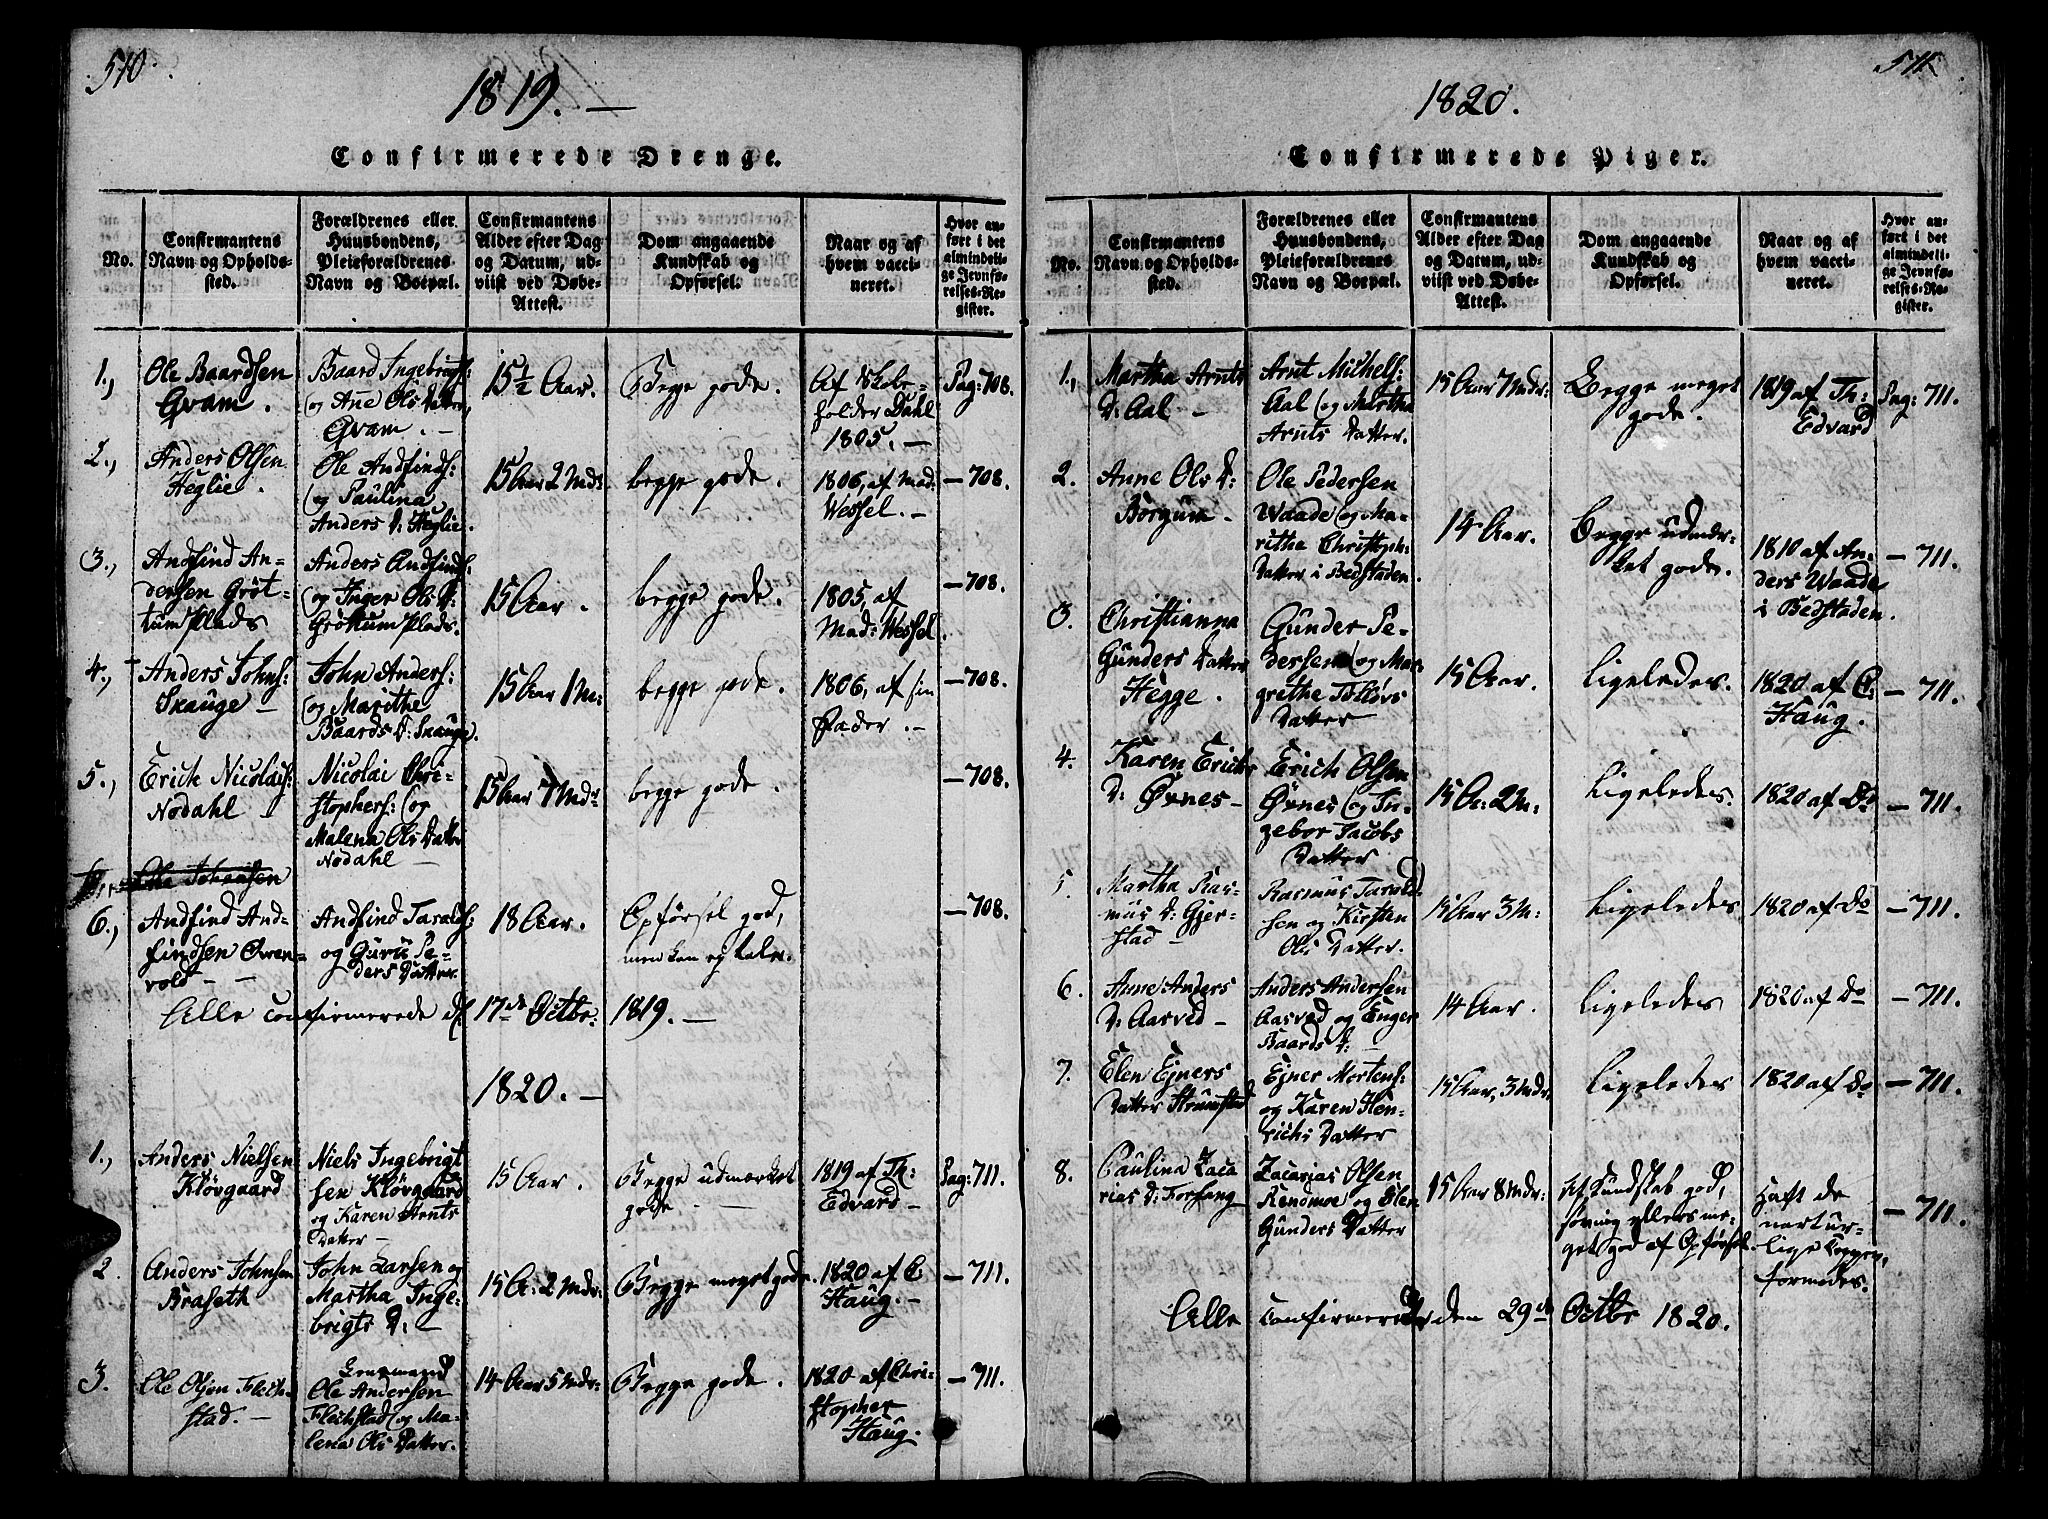 510.
1819. —
Confirmerede Drenge.
No.
Confirmantens
Navn og Opholds-
sted.
Forældrenes eller
Huusbondens,
Pleieforældrenes
Navn og Boepæl.
Confirmantens
Alder efter Dag
og Datum, ud-
viist ved Døbe-
Attest.
Dom angaaende
Kundskab og
Opførsel.
Naar og af
hvem vacci-
neret.
Hvor an-
ført i det
almindeli-
ge Jevnfø-
relses-Re-
gister.
1., Ole Baardsen
Qvam.
Baard Ingebrigts:
og Ane Ols Datter,
Qvam. —
15½ Aar.
Begge gode.
Af Skole-
holder Dahl
1805. —
Pag: 708.
2., Anders Olsen
Heglie.
Ole Andfinds:
og Paulina
Anders D: Heglie.
15 Aar 2 Mdr:
begge gode.
1806, af Mad:
Wessel. —
— 708.
3., Andfind An-
dersen Gröt-
tumplads
Anders Andfinds:
og Inger Ols D:
Gröttumplads.
15 Aar.
begge gode.
1805, af
Mad: Wessel.
— 708.
4., Anders Johns:
Skauge —
John Anders:
og Marithe
Baards D: Skauge.
15 Aar 1 M:
begge gode.
1806, af sin
Fader. —
— 708.
5., Erich Nicolais:
Nodahl —
Nicolai Chri-
stophers: og
Malena Ols Datter
Nodahl —
15 Aar 7 Mdr
begge gode.
— 708.
Johansen
6., Andfind And-
findsen Qven-
vold — —
Andfind Taralds:
og Guru Pe-
ders Datter.
18 Aar.
Opførsel god,
men kan ej tale.
— 708.
Alle confirmerede d. 17de Octbr: 1819. —
1820. —
1., Anders Nielsen
Kløvgaard
Niels Ingebrigt
sen Kløvgaard
og Karen Arnts
Datter —
15 Aar.
Begge udmærket
gode. —
1819 af Th:
Edvard —
Pag: 711.
2. Anders Johnsen
Braseth
John Larsen og
Martha Inge-
brigts D: —
15 A: 2 Mdr:
Begge meget gode.
1820 af C
Haug. —
— 711.
3. Ole Olsen Flech-
stad. —
Ole Andersen
Flechstad og Ma-
lena Ols Datter.
14 Aar 5 Mdr:
Begge gode.
1820 af Chri-
stopher
Haug.
— 711.
511.
1820.
Confirmerede Piger.
No.
Confirmantens
Navn og Opholds-
sted.
Forældrenes eller
Huusbondens,
Pleieforældrenes
Navn og Boepæl.
Confirmantens
Alder efter Dag
og Datum, ud-
viist ved Døbe-
Attest.
Dom angaaende
Kundskab og
Opførsel.
Naar og af
hvem vacci-
neret.
Hvor an-
ført i det
almindeli-
ge Jevnfø-
relses-Re-
gister.
1., Martha Arnts
D: Aal —
Arnt Michels:
Aal og Martha
Arnts Datter.
15 Aar 7 Mdr:
Begge meget
gode.
1819 af Th:
Edvard
Pag: 711.
2. Anne Ols D:
Borgum —
Ole Pedersen
Waade og Ma-
rithe Christoph:
Datter i Bedstaden.
14 Aar.
Begge udmær-
ket gode.
1810 af An-
ders Waade
i Bedstaden.
— 711.
3. Christianna
Gunders Datter
Hegge.
Gunder Pe-
dersen og Mar-
grethe Tolløvs
Datter
15 Aar.
Ligeledes.
1820 af C:
Haug.
— 711.
4. Karen Erichs
D: Øvnes —
Erich Olsen
Øvnes og In-
gebor Jacobs
Datter
15 A: 2 M:
Ligeledes.
1820 af Do
— 711.
5. Martha Ras-
mus D: Gjer-
stad —
Rasmus Tarald-
sen og Kirsten
Ols Datter.
15 Aar 3 M:
Ligeledes
1820 af Do
— 711.
6. Anne Anders
D: Aasved —
Anders Andersen
Aasved og Enger
Baards D: —
14 Aar.
Ligeledes
1820 af Do
— 711.
7. Elen Ejners
Datter Strumstad
Ejner Mortens:
og Karen Hen-
richs Datter
15 Aar, 3 Mdr.
Ligeledes
1820 af Do
— 711.
8. Paulina Zaca
rias D: Forfang
Zacarias Olsen
Rendmoe og Elen
Gunders Datter
15 Aar 8 Mdr:
af Kundskab god,
me-
get god af Opførsel
Haft de
natur-
lige Kopper,
— 711.
Alle confirmerede den 29de Octbr 1820.